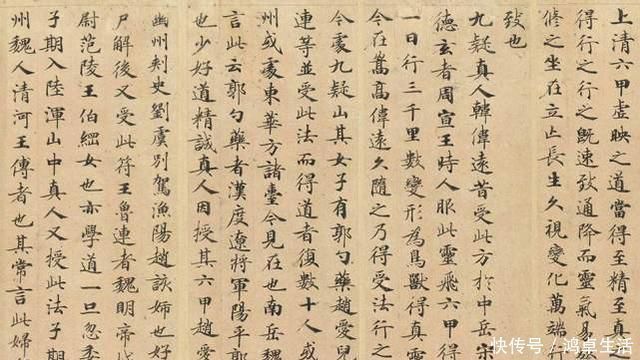 上清六甲虛映之道當得至精至真
得行之行之既速致通降而靈氣易
修之坐在立亡長生久視變化萬端
致也
九疑真人韓偉遠昔受此方於中岳宋
德玄者周宣王時人服此靈飛六甲得
一日行三千里數變形為鳥獸得真靈
今在嵩高偉遠久隨之乃得受法行之
今處九疑山其女子有郭勺藥趙愛兒
連等並受此法而得道者復數十人或
州或處東華方諸臺今見在也南岳魏
言此云郭勺藥者漢度遼將軍陽平郭
也少好道精誠真人因授其六甲趙愛
幽州刺史劉虞別駕漁陽趙該姊也好
尸解後又受此符王魯連者魏明帝城
尉范陵王伯綱女也亦學道一旦忽委
子期入陸渾山中真人又授此法子期
州魏人清河王傳者也其常言此婦
快传号／鸿卓生活